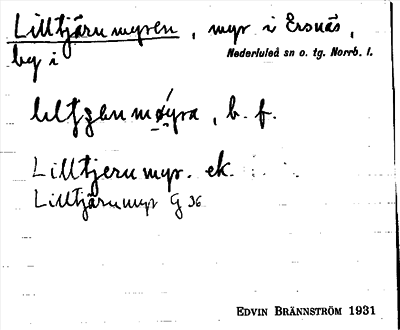 Lilltjärnmyren, myr i Ersnäs,
by i Nederluleå sn o. tg. Norrb. l.
b. f.
Lilltjernmyr. ek.
Lilltjärnmyr G 36
EDVIN BRÄNNSTRÖM 1931